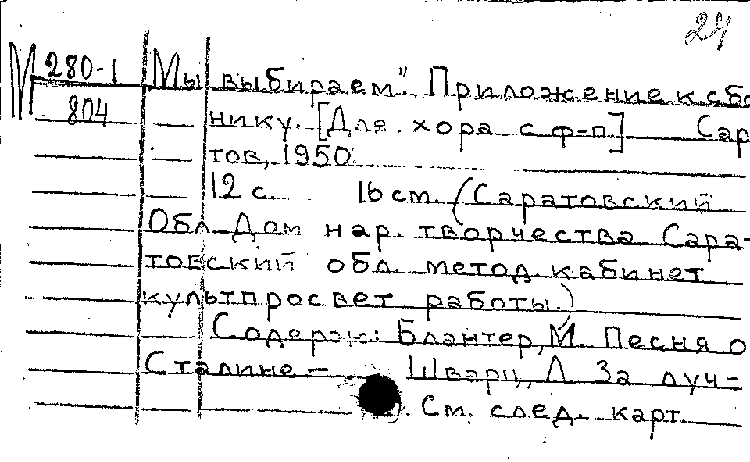 24
М 280-1 Мы выбираем". Приложение к сбо
804 нику. [Для хора с ф-п] Сар
тов, 1950.
12 с. 16 см. (Саратовский
Обл. Дом нар. творчества Сара-
товский обл. метод. кабинет
культпросвет работы.)
Содерж: Блантер, М. Песня о
Сталине – Шварц, Л. За луч-
См. след. карт.